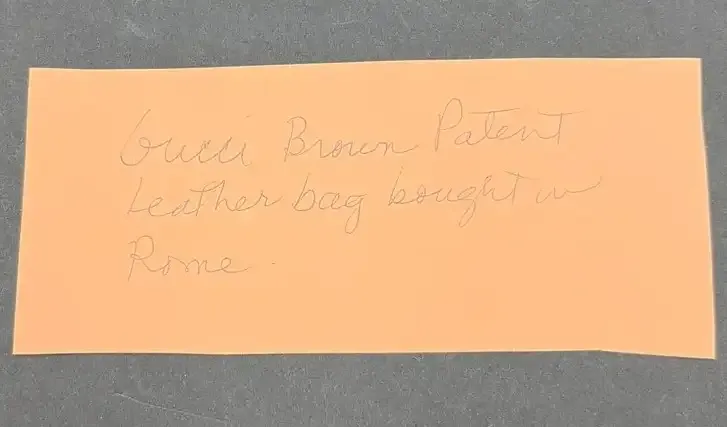 Gucci Brown Patent
Leather bag bought in
Rome.